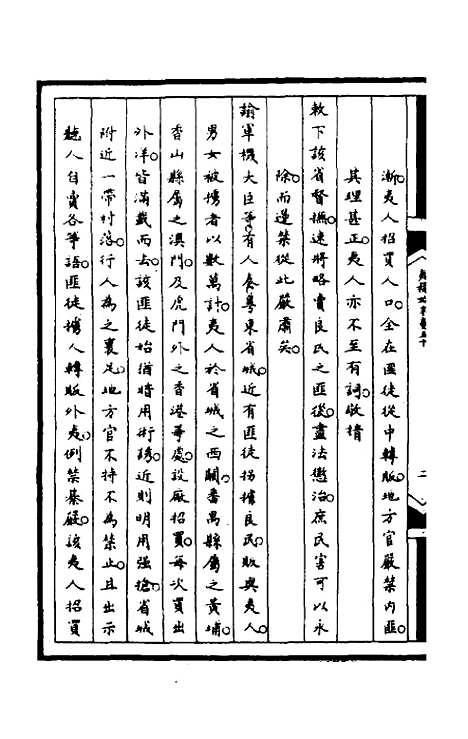 漸夷人招買人口全在匪徒從中轉販地方官嚴禁內匪
其理甚正夷人亦不至有詞收措
敕下該省督撫速將略賣良民之匪從盡法懲治庶民害可以永
除而邊禁從此嚴肅矣
諭軍機大臣等有人奏粵東省城近有匪徒拐擄良民販與夷人
男女被擄者以數萬計夷人於省城之西關番禺縣屬之黃埔
香山縣屬之澳門及虎門外之香港等處設厰招買每次買出
外洋皆滿載而去該匪徒始猶暗用術誘近則明用强搶省城
附近一帶村落行人為之裹足地方官不特不為禁止且出示
聽人自賣各等語匪徒擄人轉販外夷例禁綦嚴該夷人招買
二